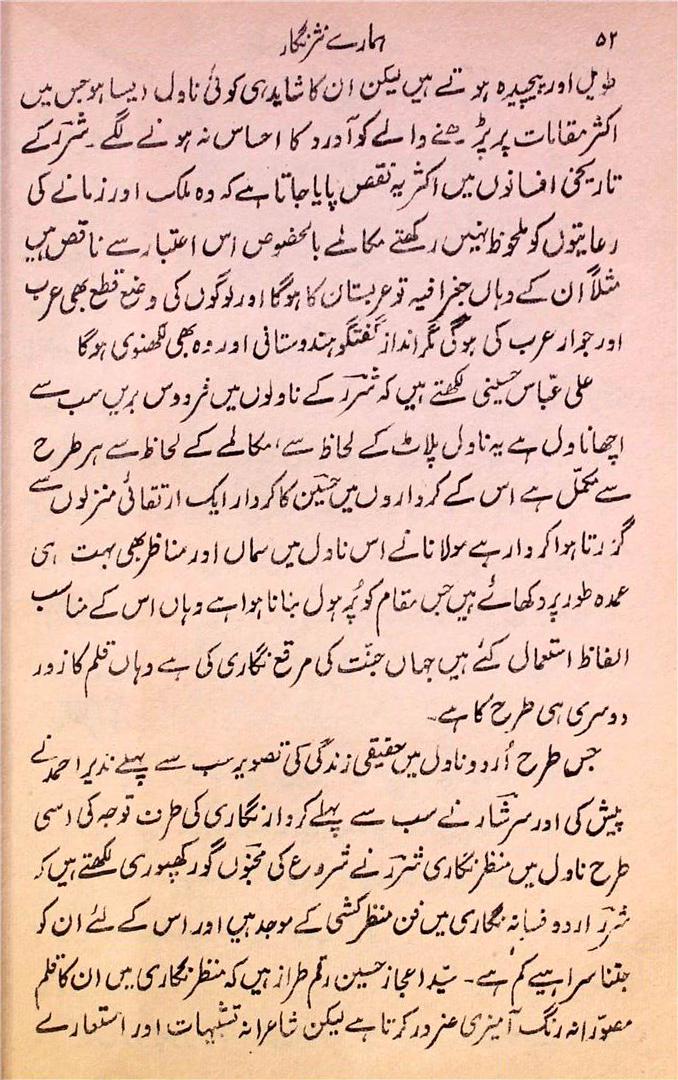 ۵۲ ہمارے نثر نگار
طویل اور پیچیدہ ہوتے ہیں لیکن ان کا شاید ہی کوئی ناول ایسا ہو جس میں
اکثر مقامات پر پڑھنے والے کو آورد کا احساس نہ ہونے لگے۔ شررؔ کے
تاریخی افسانوں میں اکثر یہ نقص پایا جاتا ہے کہ وہ ملک اور زمانے کی
رعایتوں کو ملحوظ نہیں رکھتے مکالمے بالخصوص اس اعتبار سے ناقص ہیں
مثلاً ان کے وہاں جغرافیہ تو عربستان کا ہوگا اور لوگوں کی وضع قطع بھی عرب
اور جوار عرب کی ہوگی مگر انداز گفتگو ہندوستانی اور وہ بھی لکھنوی ہوگا
علی عبّاس حسینی لکھتے ہیں کہ شررؔ کے ناولوں میں فردوس بریں سب سے
اچھا ناول ہے یہ ناول پلاٹ کے لحاظ سے، مکالمے کے لحاظ سے ہر طرح
سے مکمّل ہے اس کے کرداروں میں حسینؔ کا کردار ایک ارتقائی منزلوں سے
گزرتا ہوا کردار ہے مولانا نے اس ناول میں سماں اور مناظر بھی بہت ہی
عمدہ طور پر دکھائے ہیں جس مقام کو پُر ہول بنانا ہوا ہے وہاں اس کے مناسب
الفاظ استعمال کئے ہیں جہاں جنّت کی مرقع نگاری کی ہے وہاں قلم کا زور
دوسری ہی طرح کا ہے۔
جس طرح اُردو ناول میں حقیقی زندگی کی تصویر سب سے پہلے نذیر احمدؔ نے
پیش کی اور سرشارؔ نے سب سے پہلے کردار نگاری کی طرف توجہ کی اسی
طرح ناول میں منظر نگاری شررؔ نے شروع کی مجنوںؔ گورکھپوری لکھتے ہیں کہ
شررؔ اردو فسانہ نگاری میں فن منظر کشی کے موجد ہیں اور اس کے لئے ان کو
جتنا سراہیے کم ہے۔ سیّد اعجاز حسین رقم طراز ہیں کہ منظر نگاری میں ان کا قلم
مصوّرانہ رنگ آمیزی ضرور کرتا ہے لیکن شاعرانہ تشبیہات اور استعارے